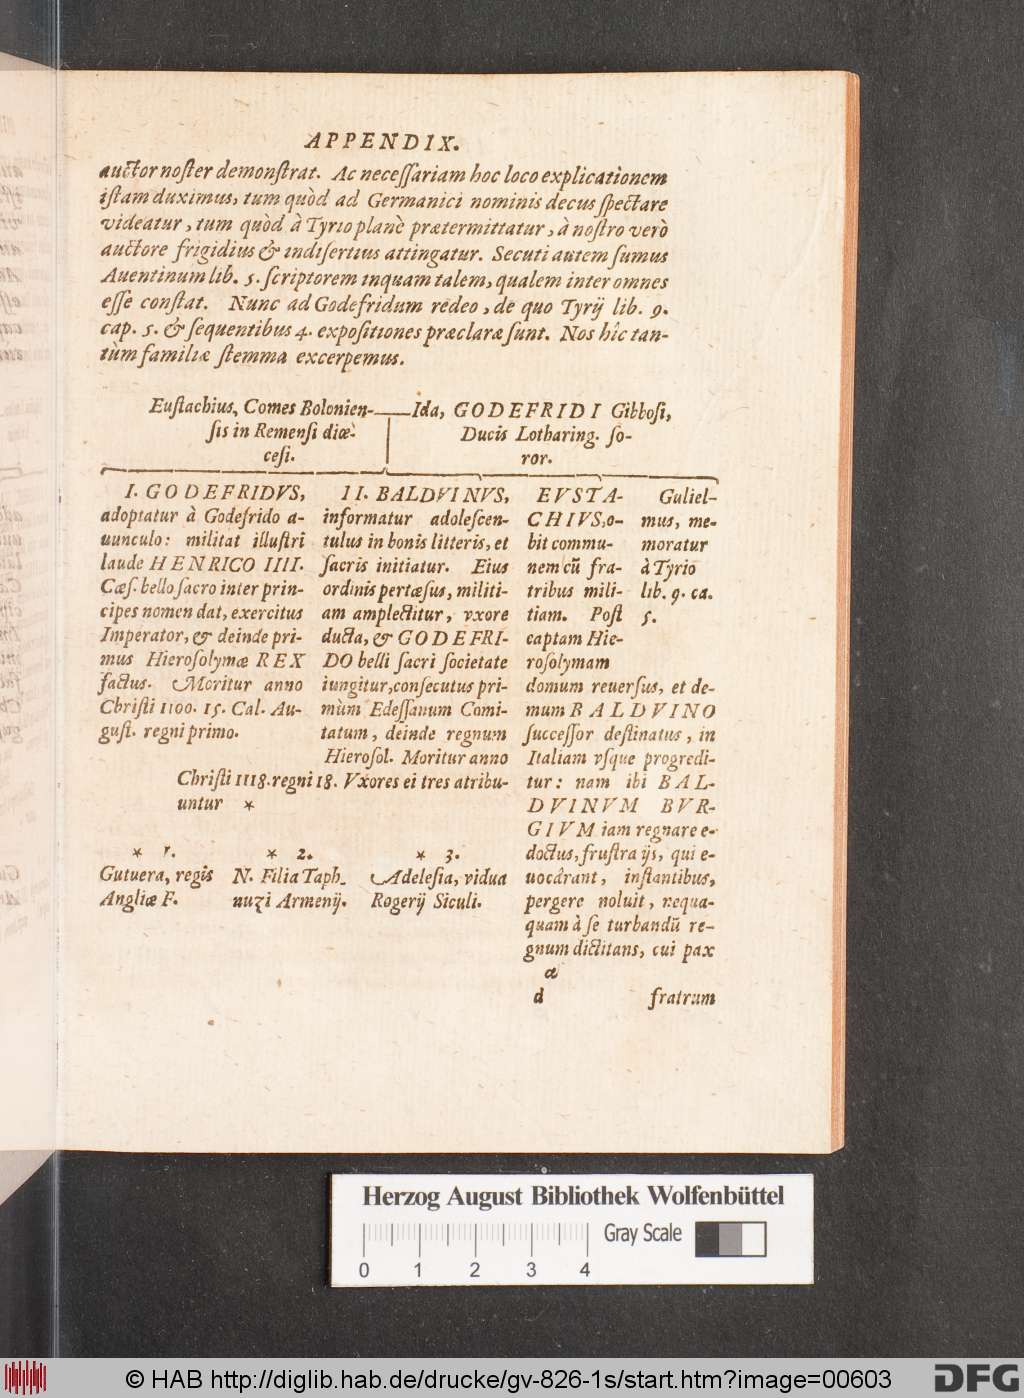 APPENDIX.
auctor noster demonſtrat. Ac neceſſariam hoc loco explicationem
iſtam duximus, tum quòd ad Germanici nominis decus ſpectare
videatur, tum quòd à Tyrio planè prætermittatur, à noſtro verò
auctore frigidius & indiſertius attingatur. Secuti autem ſumus
Auentinum lib. 5. ſcriptorem inquam talem, qualem inter omnes
eſſe conſtat. Nunc ad Godefridum redeo, de quo Tyrij lib. 9.
cap. 5. & ſequentibus 4. expoſitiones præclaræ ſunt. Nos hîc tan-
tùm familiæ ſtemma excerpemus.
Euſtachius, Comes Bolonien-
ſis in Remenſi diœ-
ceſi.
Ida, GODEFRIDI Gibboſi,
Ducis Lotharing. ſo-
ror.
I. GODEFRIDVS,
adoptatur à Godefrido a-
uunculo: militat illuſtri
laude HENRICO IIII.
Cæſ. bello ſacro inter prin-
cipes nomen dat, exercitus
Imperator, & deinde pri-
mus Hieroſolymæ REX
factus. Moritur anno
Chriſti 1100. 15. Cal. Au-
guſt. regni primo.
II. BALDVINVS,
informatur adoleſcen-
tulus in bonis litteris, et
ſacris initiatur. Eius
ordinis pertæſus, militi-
am amplectitur, vxore
ducta, & GODEFRI-
DO belli ſacri ſocietate
iungitur, conſecutus pri-
mùm Edeſſanum Comi-
tatum, deinde regnum
Hieroſol. Moritur anno
Chriſti 1118. regni 18. Vxores ei tres atribu-
untur *
* 1.
Gutuera, regis
Angliæ F.
* 2.
N. Filia Taph-
nuzi Armenij.
* 3.
Adeleſia, vidua
Rogerij Siculi.
EVSTA-
CHIVS, o-
bit commu-
nem cũ fra-
tribus mili-
tiam. Poſt
captam Hie-
roſolymam
domum reuerſus, et de-
mum BALDVINO
ſucceſſor deſtinatus, in
Italiam vſque progredi-
tur: nam ibi BAL-
DVINVM BVR-
GIVM iam regnare e-
doctus, fruſtra ijs, qui e-
uocârant, inſtantibus,
pergere noluit, nequa-
quam à ſe turbandũ re-
gnum dictitans, cui pax
Guliel-
mus, me-
moratur
à Tyrio
lib. 9. ca.
5.
d
fratrum
Herzog August Bibliothek Wolfenbüttel
Gray Scale
0 1 2 3 4
© HAB http://diglib.hab.de/drucke/gv-826-1s/start.htm?image=00603
DFG